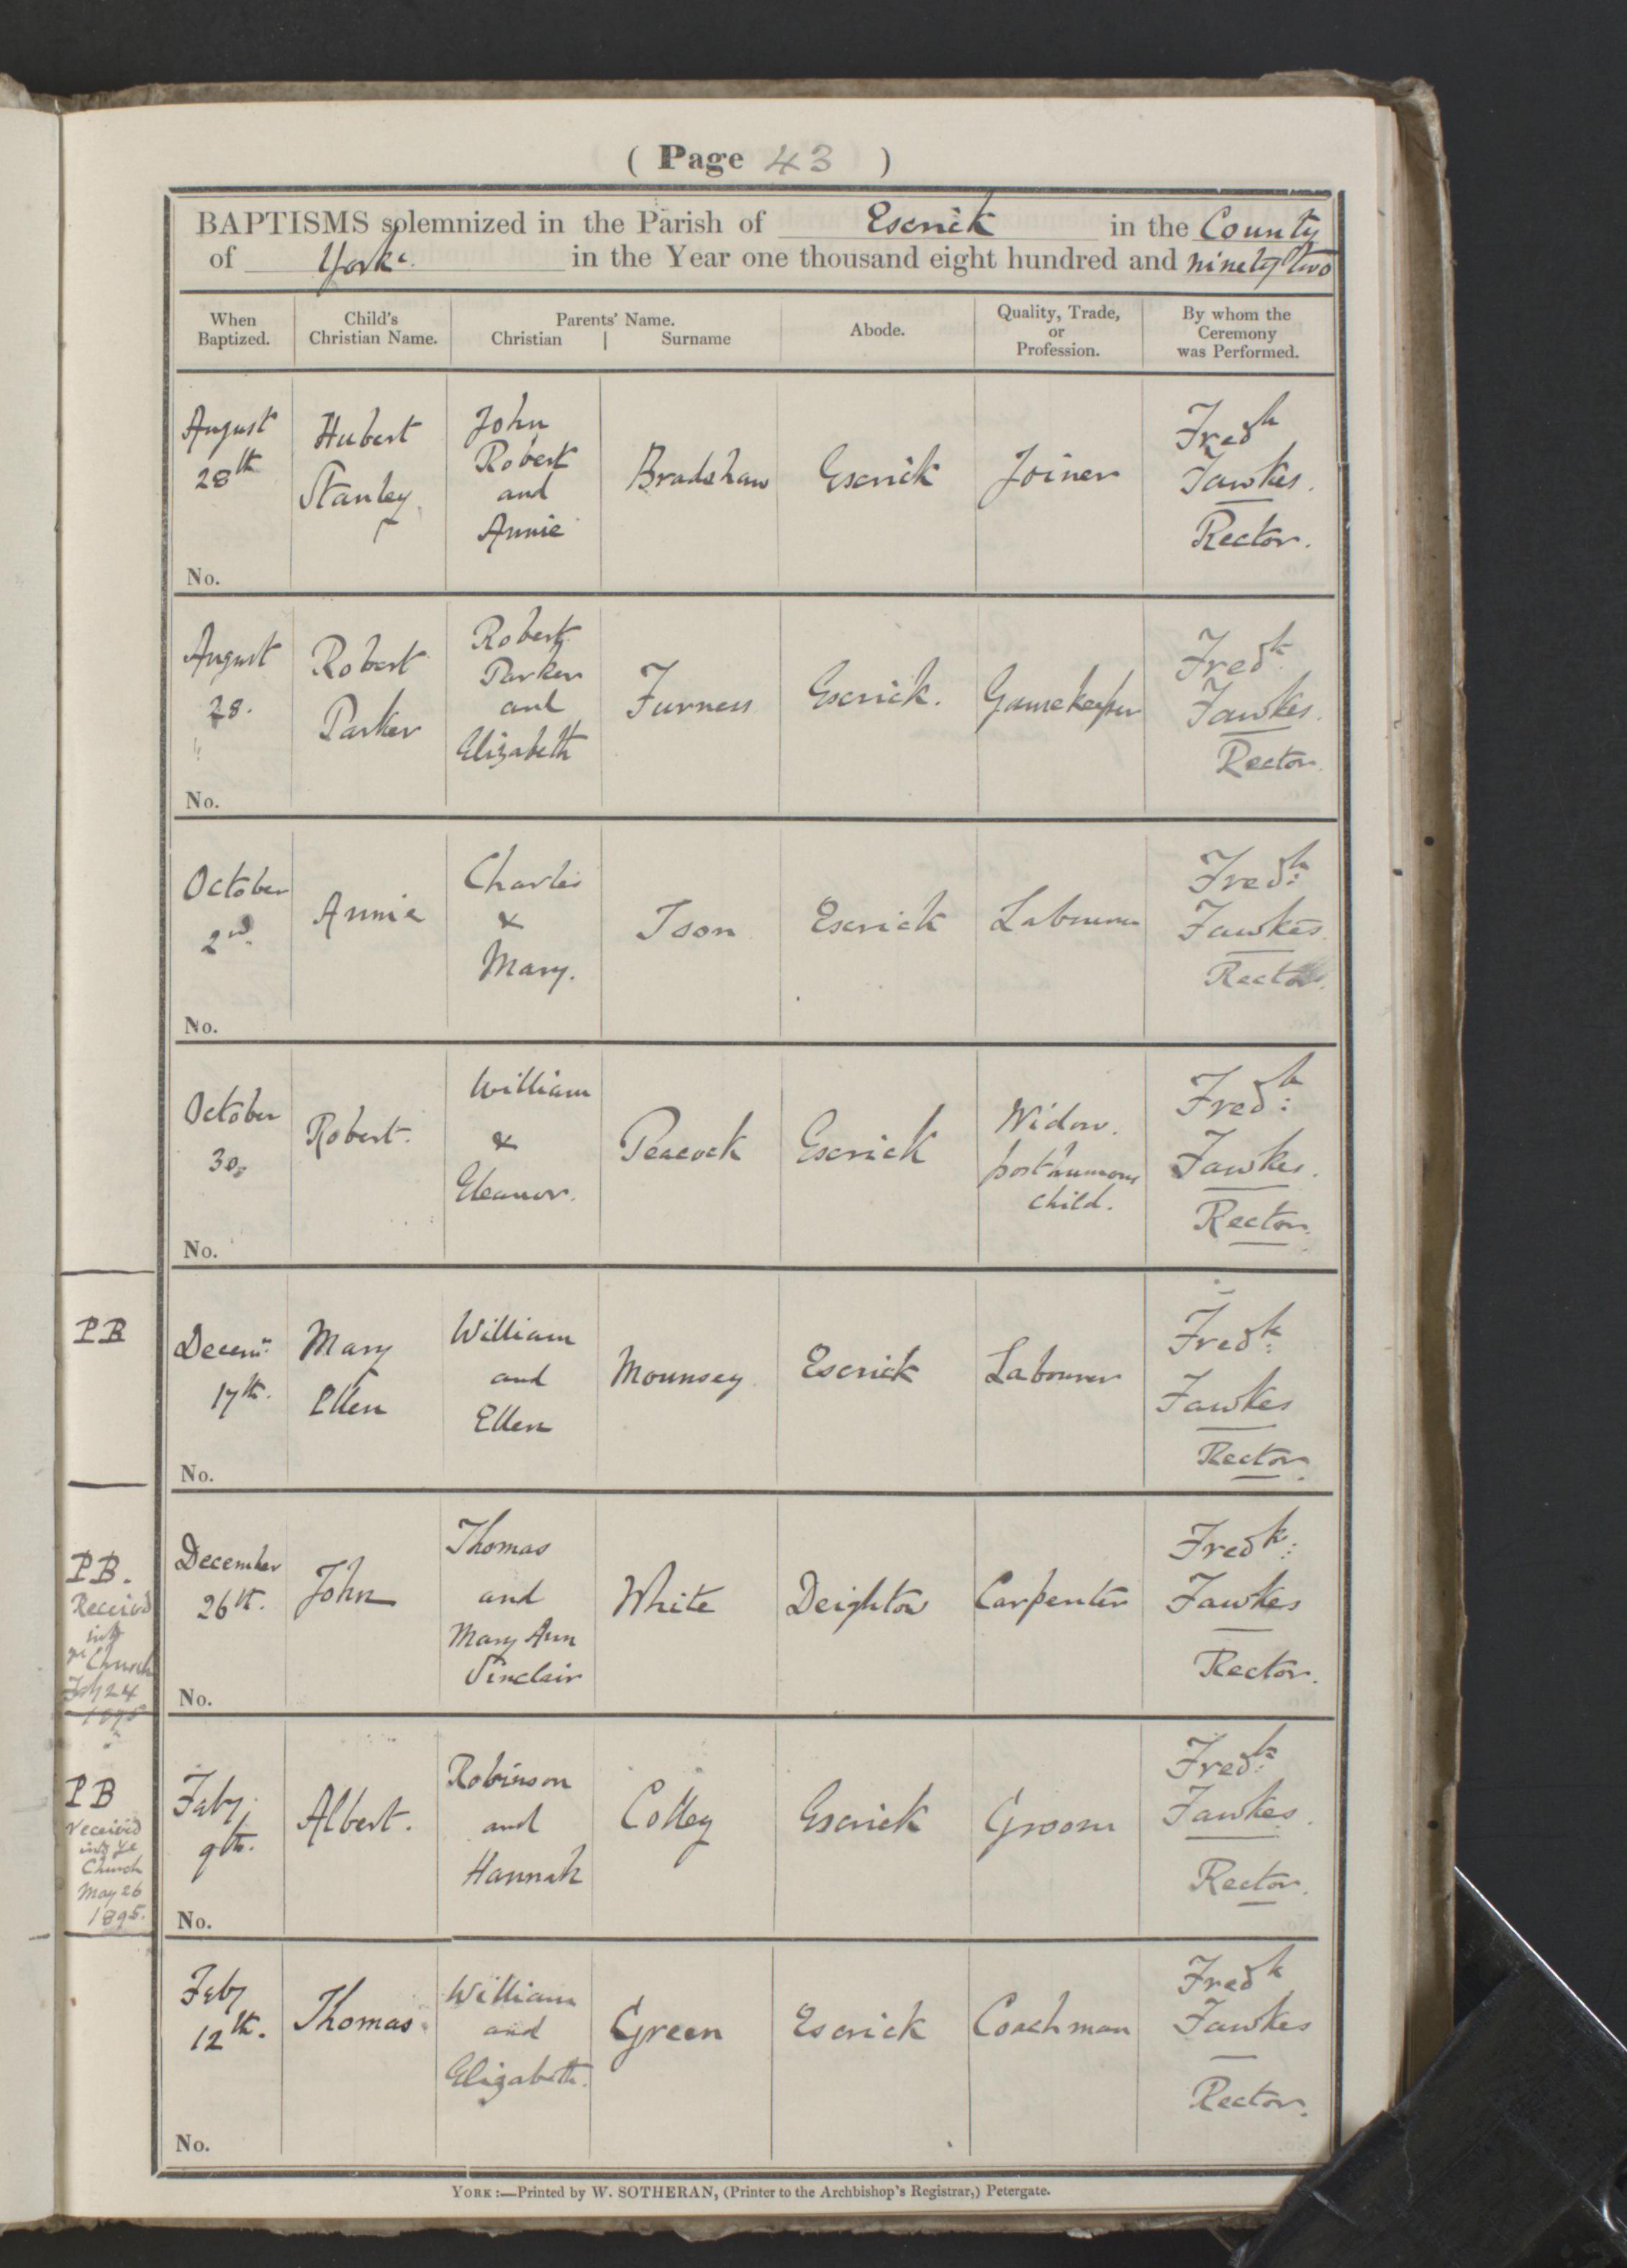 ( Page 43 )
BAPTISMS solemnized in the Parish of Escrick in the County
of York in the Year one thousand eight hundred and ninety two
When Baptized. Child's Christian Name. Parents' Name. Christian | Surname Abode. Quality, Trade, or Profession. By whom the Ceremony was Performed.
August 28th
Hubert Stanley
John Robert and Annie
Bradshaw
Escrick
Joiner
Fredk Fawkes. Rector.
No.
August 28.
Robert Parker
Robert Parker and Elizabeth
Furness
Escrick.
Gamekeeper
Fredk Fawkes. Rector.
No.
October 2nd.
Annie
Charles & Mary.
Ison
Escrick
Labourer
Fredk: Fawkes. Rector.
No.
October 30.
Robert.
William & Eleanor.
Peacock
Escrick
Widow. posthumous child.
Fredk: Fawkes. Rector.
No.
PB
Decem: 17th.
Mary Ellen
William and Ellen
Mounsey
Escrick
Labourer
Fredk: Fawkes Rector.
No.
PB. Received into ye Church Feby 24 1895
December 26th.
John
Thomas and Mary Ann Sinclair
White
Deighton
Carpenter
Fredk: Fawkes Rector.
No.
PB received into ye Church May 26 1895.
Feby. 9th.
Albert.
Robinson and Hannah
Colley
Escrick
Groom
Fredk: Fawkes. Rector.
No.
Feby 12th.
Thomas
William and Elizabeth.
Green
Escrick
Coachman
Fredk Fawkes Rector.
No.
YORK :—Printed by W. SOTHERAN, (Printer to the Archbishop's Registrar,) Petergate.